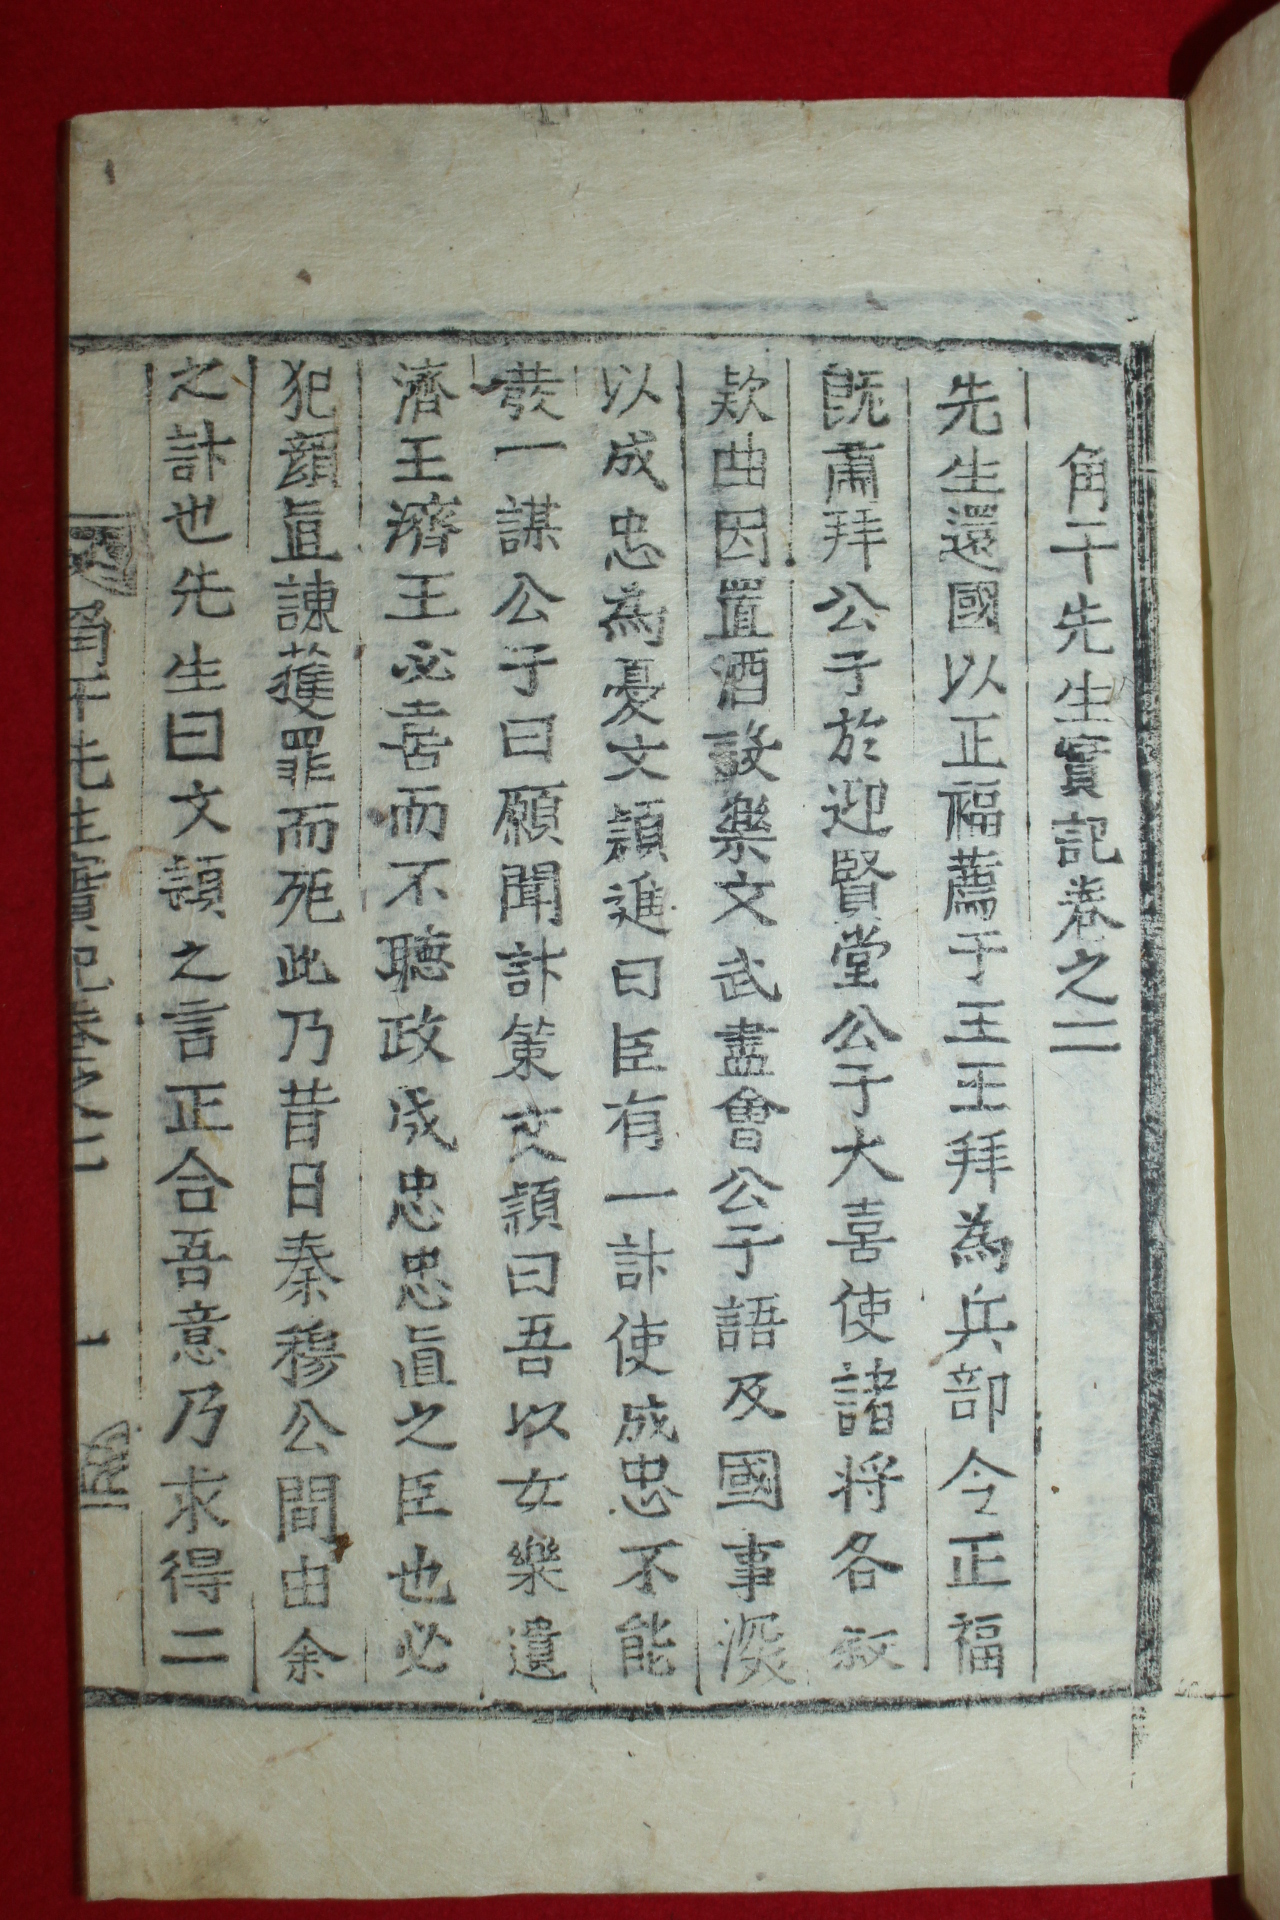 角干先生實記卷之二
先生還國以正福薦于王王拜為兵部令正福
旣肅拜公子於迎賢堂公子大喜使諸将各叙
欵曲因置酒設樂文武盡會公子語及國事深
以成忠為憂文穎進曰臣有一計使成忠不能
發一謀公子曰願聞計策文穎曰吾以女樂遺
濟王濟王必喜而不聽政成忠忠直之臣也必
犯顔直諫獲罪而死此乃昔日秦穆公間由余
之計也先生曰文穎之言正合吾意乃求得二
角干先生實記卷之二 一